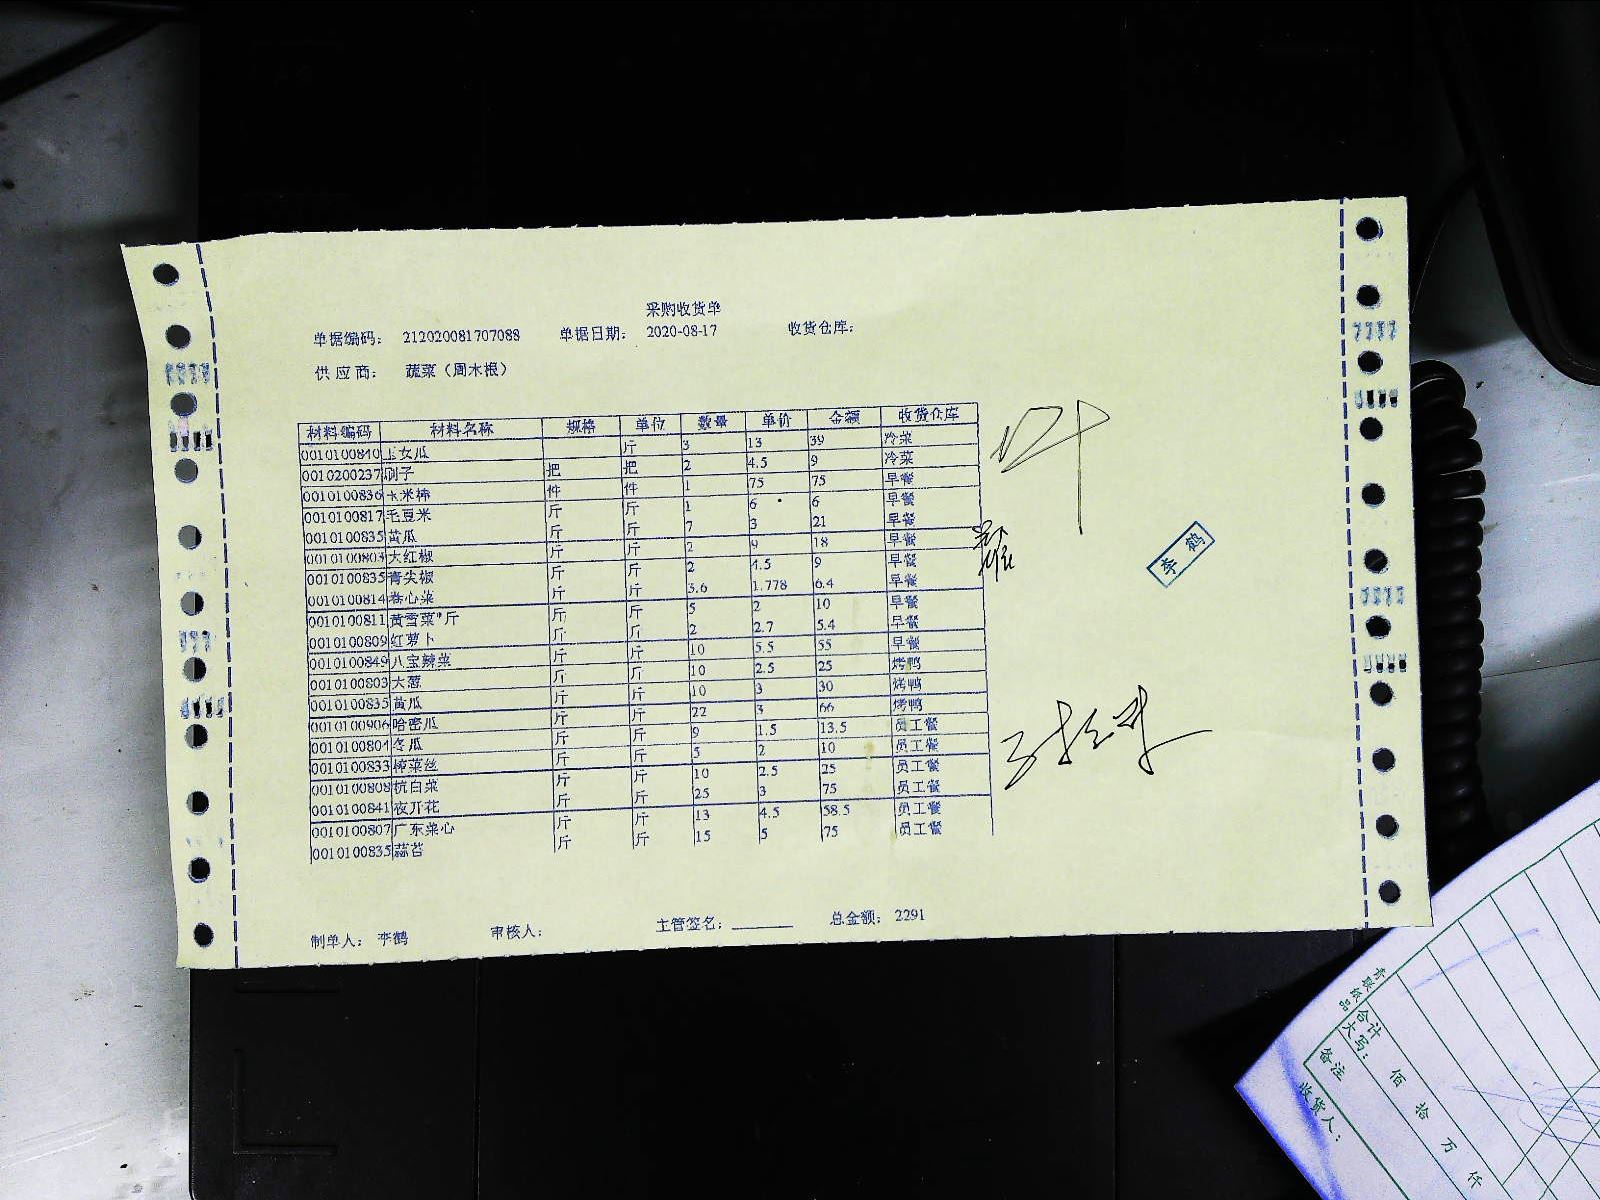 采购收货单
单据编码： 212020081707088 单据日期： 2020-08-17 收货仓库：
供应商： 蔬菜（周木根）
材料编码 材料名称 规格 单位 数量 单价 金额 收货仓库
0010100840 玉女瓜 斤 3 13 39 冷菜
0010200237 刷子 把 把 2 4.5 9 冷菜
0010100836 玉米棒 件 件 1 75 75 早餐
0010100817 毛豆米 斤 斤 1 6 6 早餐
0010100835 黄瓜 斤 斤 7 3 21 早餐
0010100803 大红椒 斤 斤 2 9 18 早餐
0010100835 青尖椒 斤 斤 2 4.5 9 早餐
0010100814 卷心菜 斤 斤 3.6 1.778 6.4 早餐
0010100811 黄雪菜*斤 斤 斤 5 2 10 早餐
0010100809 红萝卜 斤 斤 2 2.7 5.4 早餐
0010100849 八宝辣菜 斤 斤 10 5.5 55 早餐
0010100803 大葱 斤 斤 10 2.5 25 烤鸭
0010100835 黄瓜 斤 斤 10 3 30 烤鸭
0010100906 哈密瓜 斤 斤 22 3 66 烤鸭
0010100804 冬瓜 斤 斤 9 1.5 13.5 员工餐
0010100833 榨菜丝 斤 斤 5 2 10 员工餐
0010100808 杭白菜 斤 斤 10 2.5 25 员工餐
0010100841 夜开花 斤 斤 25 3 75 员工餐
0010100807 广东菜心 斤 斤 13 4.5 58.5 员工餐
0010100835 蒜苔 斤 斤 15 5 75 员工餐
李鹤
制单人： 李鹤 审核人： 主管签名： 总金额： 2291
青联纸品
合计
大写： 佰 拾 万 仟
备注
收货人：